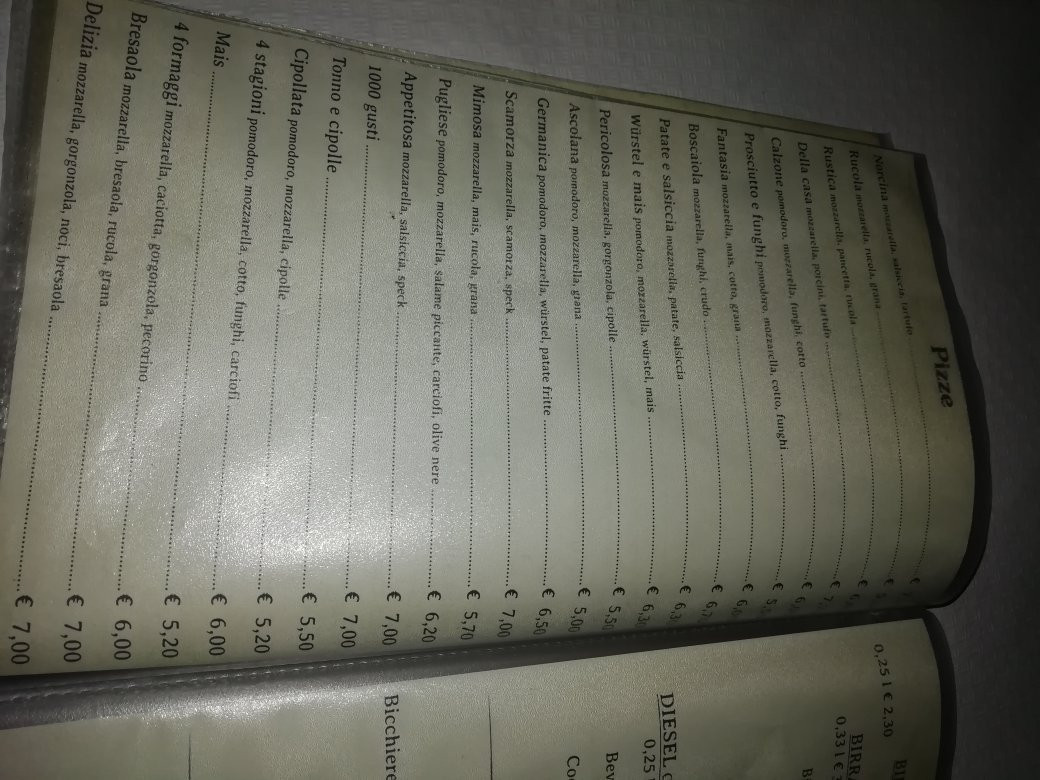 Pizze
Norcina mozzarella, salsiccia, tartufo €
Rucola mozzarella, rucola, grana €
Rustica mozzarella, pancetta, rucola €
Della casa mozzarella, porcini, tartufo €
Calzone pomodoro, mozzarella, funghi, cotto €
Prosciutto e funghi pomodoro, mozzarella, cotto, funghi €
Fantasia mozzarella, mais, cotto, grana €
Boscaiola mozzarella, funghi, crudo €
Patate e salsiccia mozzarella, patate, salsiccia €
Würstel e mais pomodoro, mozzarella, würstel, mais € 6,30
Pericolosa mozzarella, gorgonzola, cipolle € 5,50
Ascolana pomodoro, mozzarella, grana € 5,00
Germanica pomodoro, mozzarella, würstel, patate fritte € 6,50
Scamorza mozzarella, scamorza, speck € 7,00
Mimosa mozzarella, mais, rucola, grana € 5,70
Pugliese pomodoro, mozzarella, salame piccante, carciofi, olive nere € 6,20
Appetitosa mozzarella, salsiccia, speck € 7,00
1000 gusti € 7,00
Tonno e cipolle € 5,50
Cipollata pomodoro, mozzarella, cipolle € 5,20
4 stagioni pomodoro, mozzarella, cotto, funghi, carciofi € 6,00
Mais € 5,20
4 formaggi mozzarella, caciotta, gorgonzola, pecorino € 6,00
Bresaola mozzarella, bresaola, rucola, grana € 7,00
Delizia mozzarella, gorgonzola, noci, bresaola € 7,00
0,25 l € 2,30
BIRR
0,33 l €
DIESEL
0,25 l
Bev
Co
Bicchiere